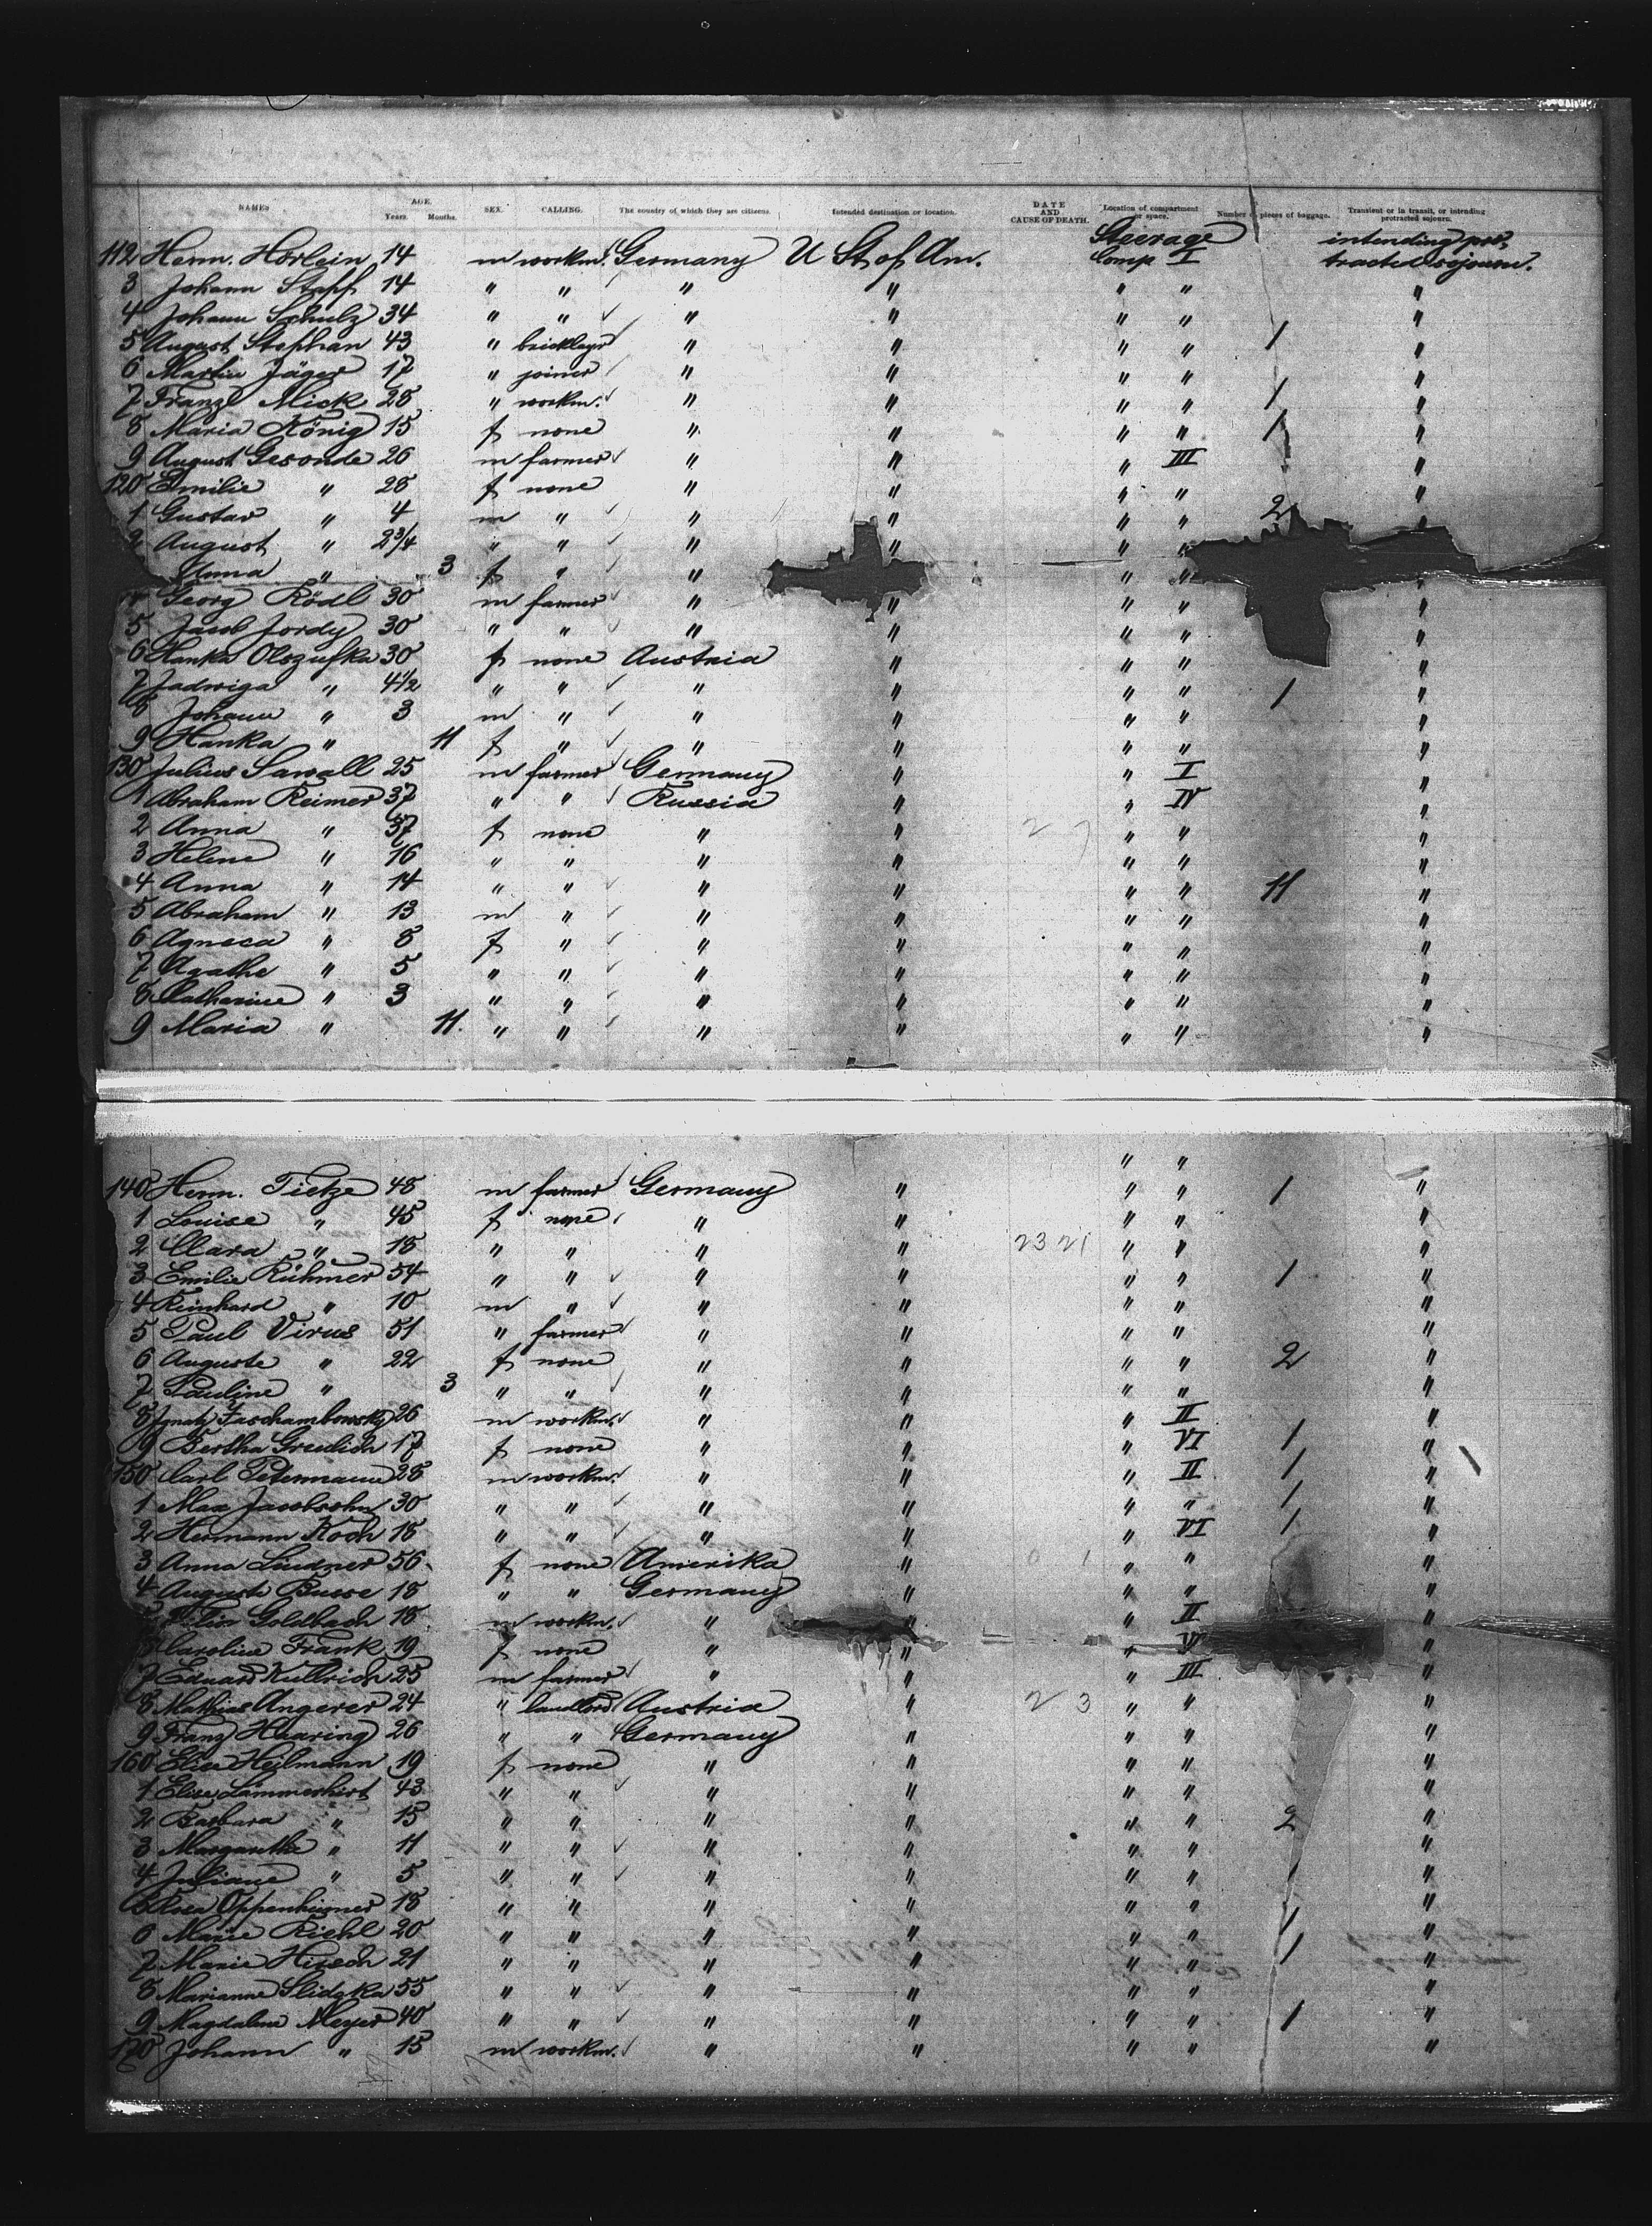 NAMES AGE. Years. Months. SEX. CALLING. The country of which they are citizens. Intended destination or location. DATE AND CAUSE OF DEATH. Location of compartment or space. Number of pieces of baggage. Transient or in transit, or intending protracted sojourn.
112 Herm. Hörlein 14 m workm. Germany U St of Am. Steerage Comp I intending protracted sojourn.
3 Johann Stapf 14 " " " " " " "
4 Johann Schulz 34 " " " " " " "
5 August Stephan 43 " bricklayr " " " " 1 "
6 Martin Jäger 17 " joiner " " " " "
7 Franz Mick 28 " workm. " " " " 1 "
8 Maria König 15 f none " " " " 1 "
9 August Gesonde 26 m farmer " " " III "
120 Emilie " 28 f none " " " " "
1 Gustav " 4 m " " " " " 2 "
2 August " 2 3/4 " " " " " " "
Anna " 3 f " " " " "
Georg Rödl 30 m farmer " " " " "
5 Jacob Jordy 30 " " " " " " "
6 Hanka Olszufka 30 f none Austria " " " "
7 Jadwiga " 4 1/2 " " " " " " 1 "
8 Johann " 3 m " " " " " "
9 Hanka " 11 f " " " " " "
130 Julius Sawall 25 m farmer Germany " " I "
1 Abraham Reimer 37 " " Russia " " IV "
2 Anna " 37 f none " " 2 " " "
3 Helene " 16 " " " " " " "
4 Anna " 14 " " " " " " 11 "
5 Abraham " 13 m " " " " " "
6 Agneca " 8 f " " " " " "
7 Agathe " 5 " " " " " " "
8 Catharine " 3 " " " " " " "
9 Maria " 11. " " " " " " "
" "
140 Herm. Tietze 48 m farmer Germany " " " 1 "
1 Louise " 45 f none " " " " "
2 Clara " 18 " " " " 23 21 " " "
3 Emilie Rühmer 54 " " " " " " 1 "
4 Reinhard " 10 m " " " " " "
5 Paul Virus 51 " farmer " " " " "
6 Auguste " 22 f none " " " " 2 "
7 Pauline " 3 " " " " " " "
8 Ignatz Faschambowsky 26 m workm. " " " II "
9 Bertha Greulich 17 f none " " " VI 1 "
150 Carl Petermann 28 m workm. " " " II 1 "
1 Max Jacobsohn 30 " " " " " " 1 "
2 Hermann Koch 18 " " " " " VI 1 "
3 Anna Lindner 56 f none Amerika " 0 1 " " "
4 Auguste Busse 18 " " Germany " " " "
Goldbach 18 m workm. " " " II "
Caroline Frank 19 f none " " " VI "
7 Eduard Kullrich 25 m farmer " " " III "
8 Mathias Angerer 24 " landlord Austria " 2 3 " " "
9 Franz Haaring 26 " " Germany " " " "
160 Elise Heilmann 19 f none " " " " "
1 Elise Lämmerhirt 43 " " " " " " "
2 Barbara " 15 " " " " " " 2 "
3 Margaretha " 11 " " " " " " "
4 Juliane " 5 " " " " " " "
5 Rosa Oppenheimer 18 " " " " " " "
6 Marie Riehl 20 " " " " " " 1 "
7 Marie Hirsch 21 " " " " " " 1 "
8 Marianne Slidzka 55 " " " " " " "
9 Magdalene Meyer 40 " " " " " " 1 "
170 Johann " 15 m workm. " " " " "